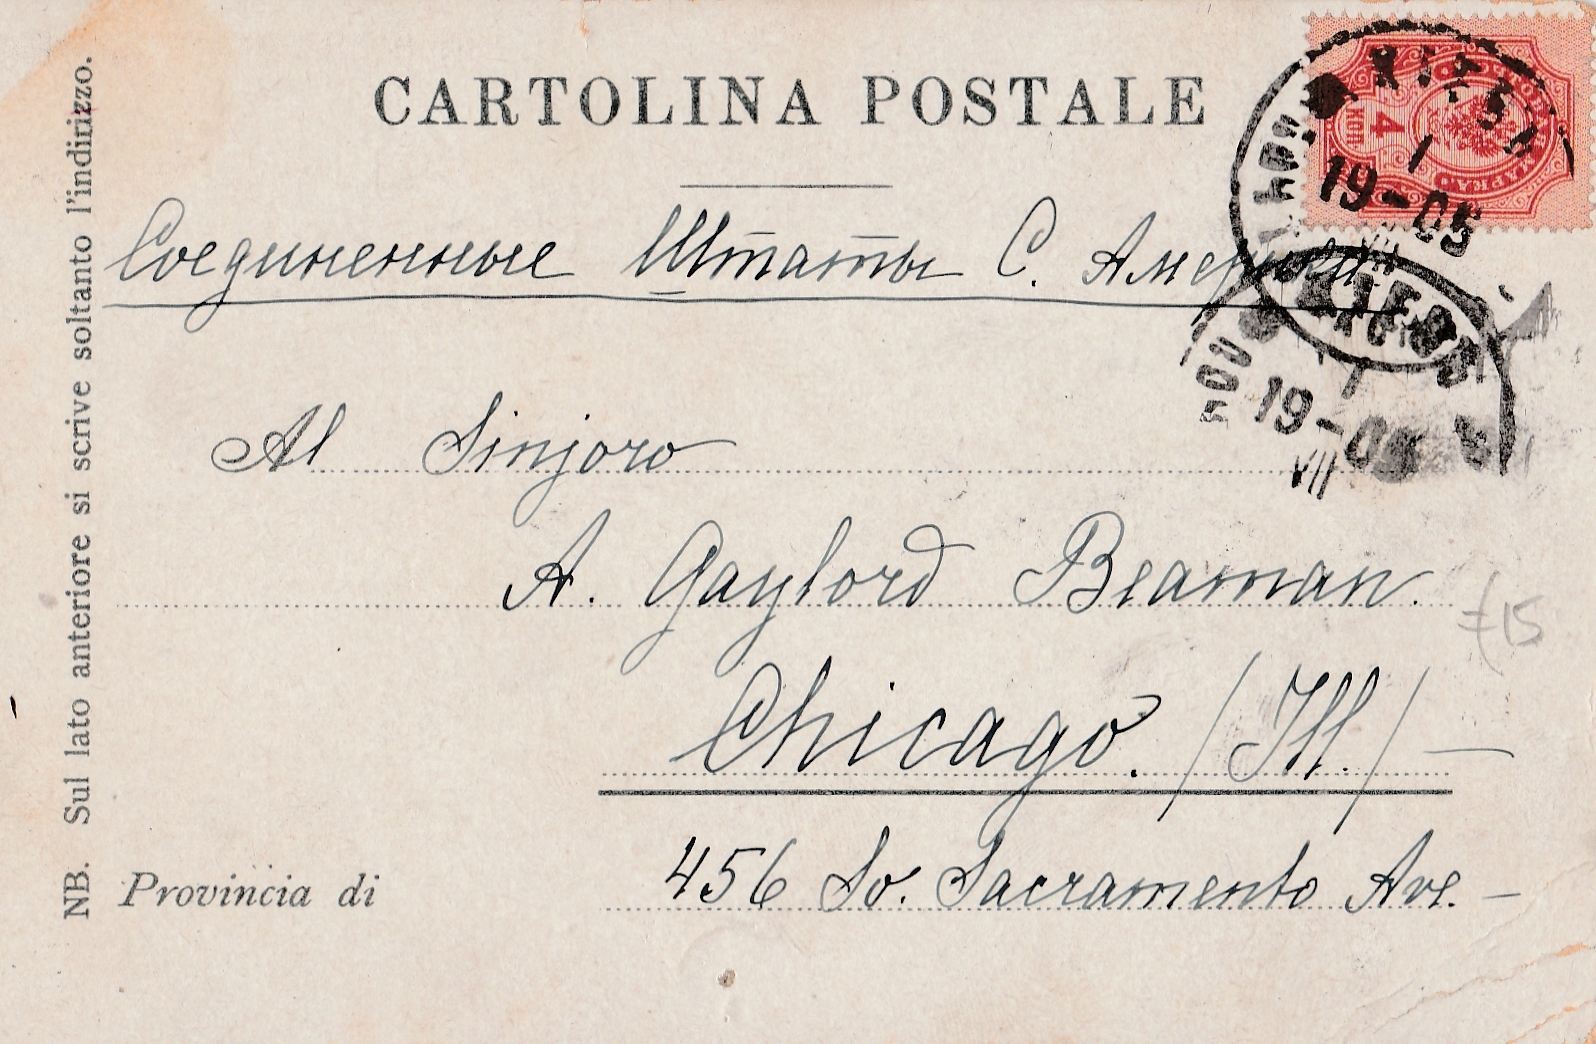 CARTOLINA POSTALE
4
КОП
МАРКА
КІЕВЪ
1
19-05
VII
Соединенные Штаты С. Америки
КІЕВЪ
1
19-05
VII
Al Sinjoro
A. Gaylord Beaman.
Chicago. /Ill./ —
£15
Provincia di
456 So. Sacramento Ave. —
NB. Sul lato anteriore si scrive soltanto l'indirizzo.